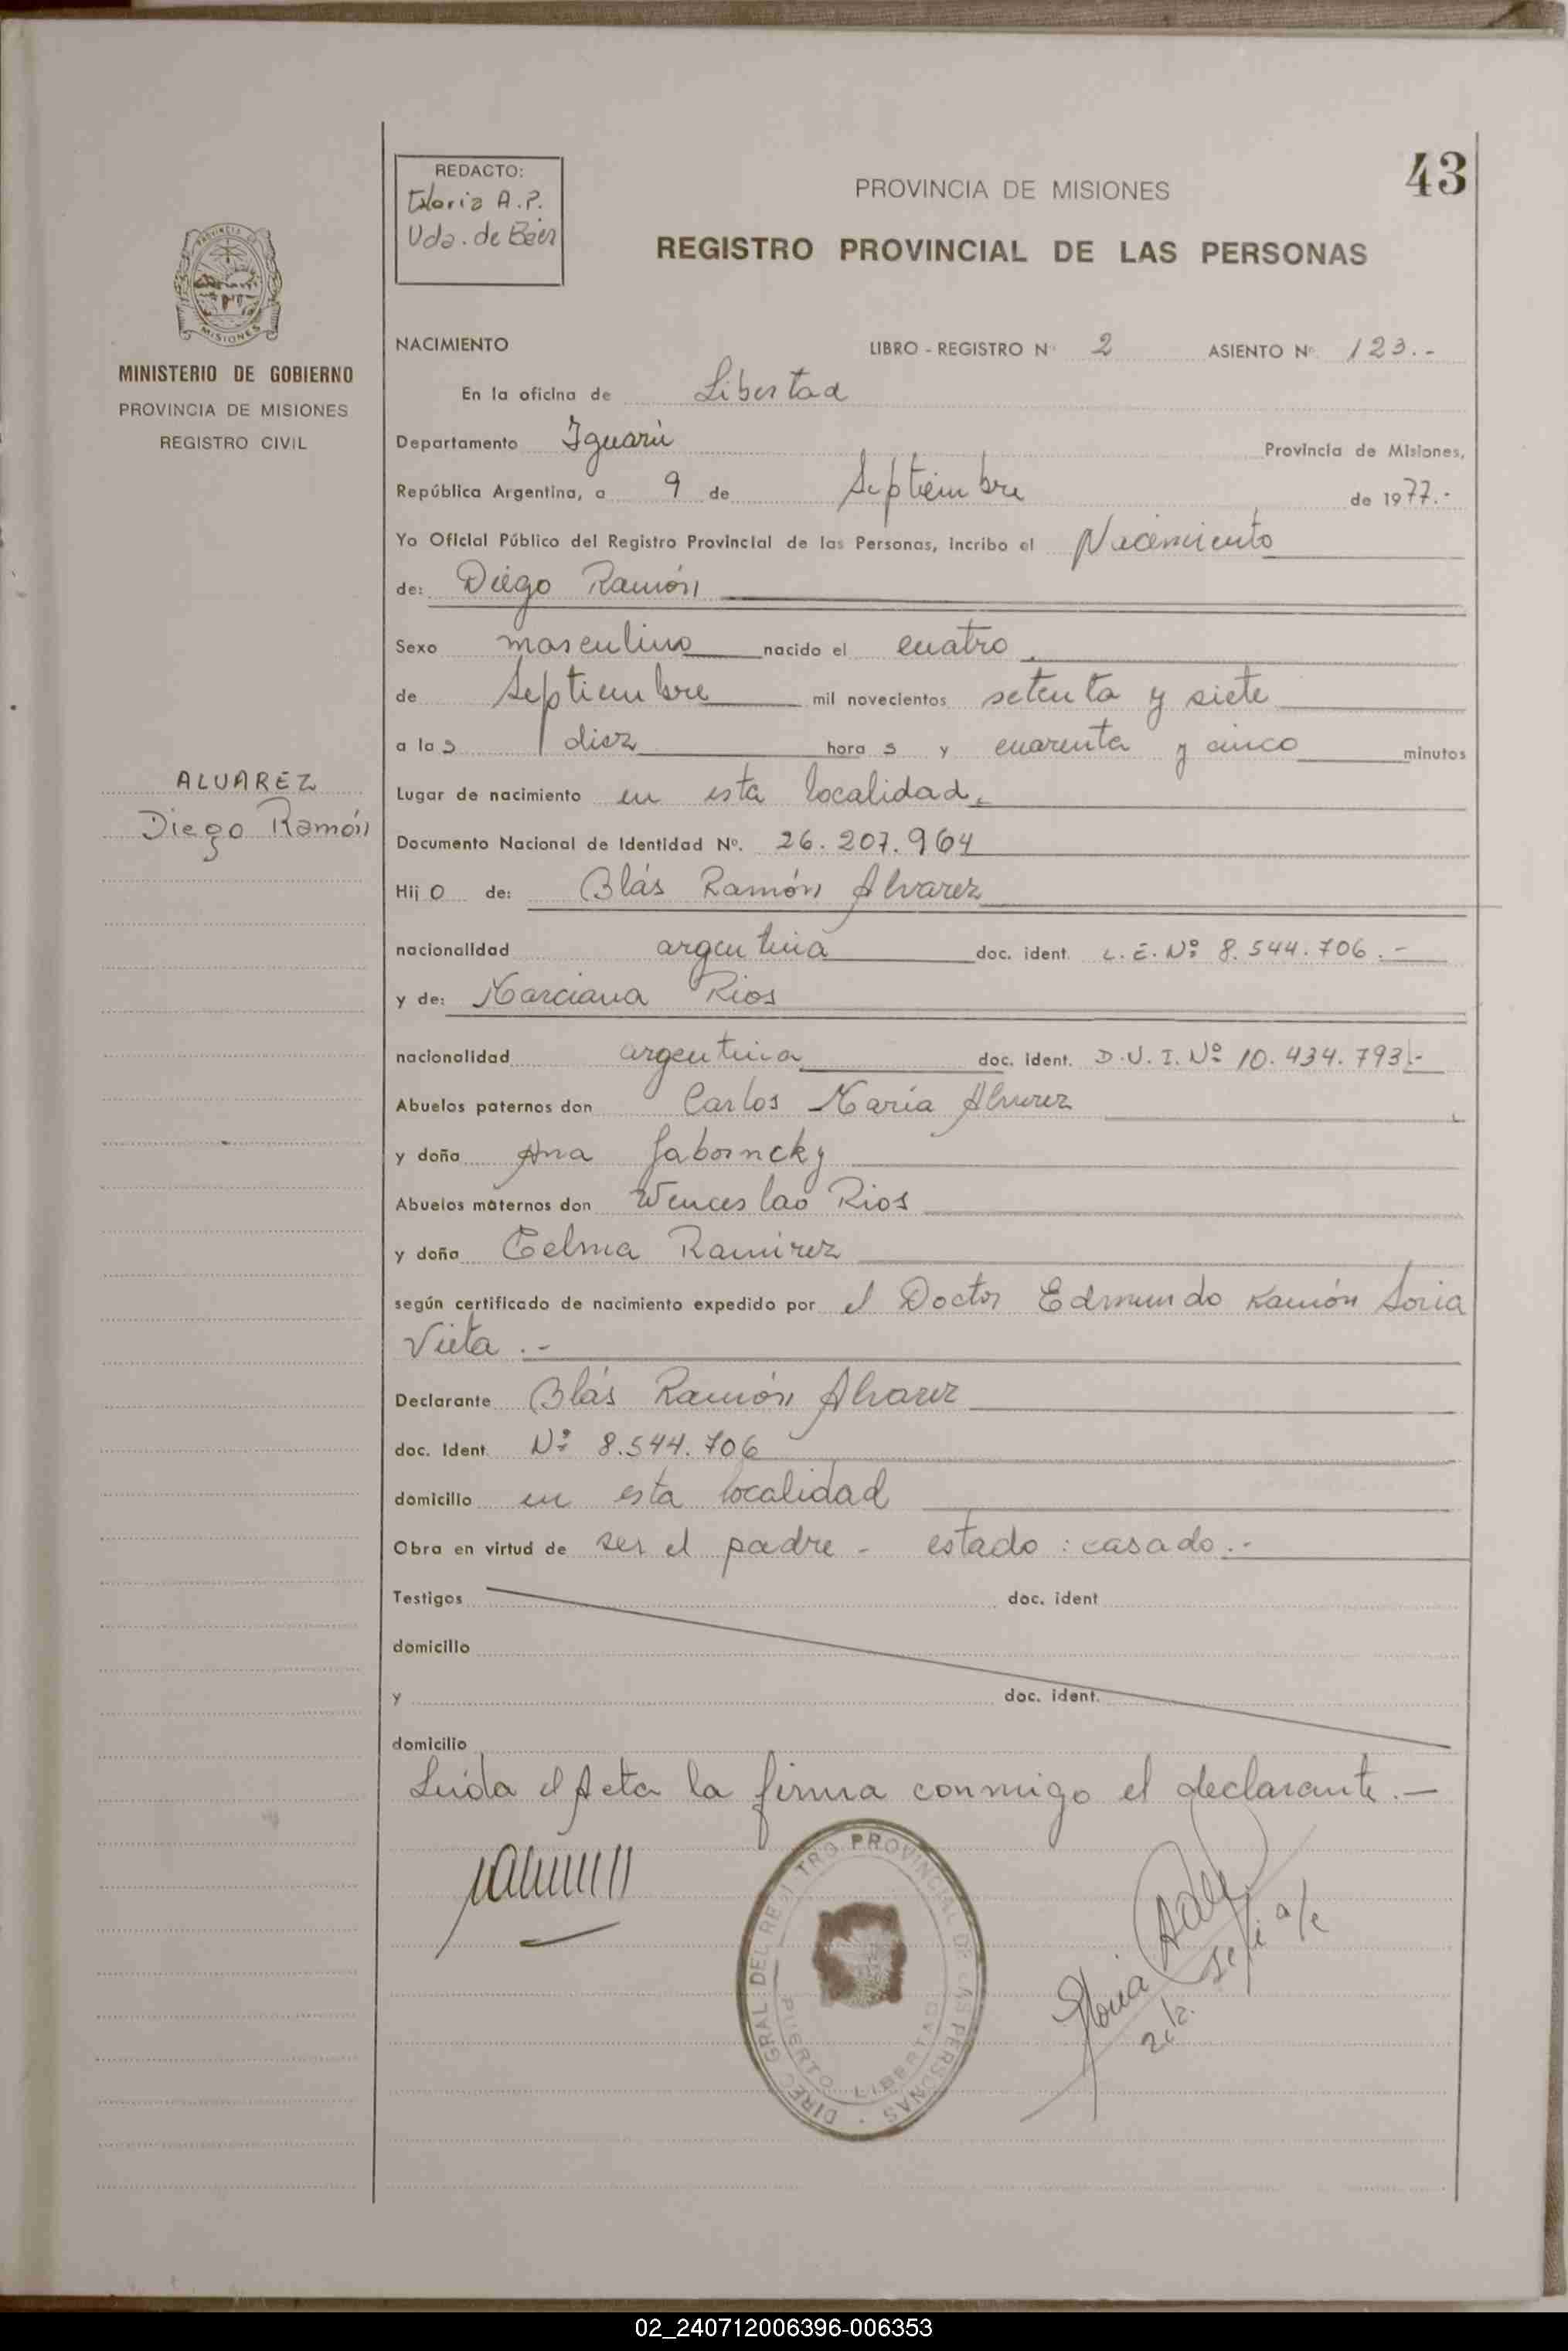 43
REDACTO:
Gloria A.P.
Vda. de Báez
PROVINCIA DE MISIONES
REGISTRO PROVINCIAL DE LAS PERSONAS
PROVINCIA DE
MISIONES
MINISTERIO DE GOBIERNO
PROVINCIA DE MISIONES
REGISTRO CIVIL
ALVAREZ
Diego Ramón
NACIMIENTO LIBRO - REGISTRO Nº 2 ASIENTO Nº 123.-
En la oficina de Libertad
Departamento Iguazú Provincia de Misiones,
República Argentina, a 9 de Septiembre de 1977.-
Yo Oficial Público del Registro Provincial de las Personas, incribo el Nacimiento
de: Diego Ramón
Sexo masculino nacido el cuatro
de Septiembre mil novecientos setenta y siete
a las diez horas y cuarenta y cinco minutos
Lugar de nacimiento en esta localidad.
Documento Nacional de Identidad Nº. 26.207.964
Hijo de: Blás Ramón Alvarez
nacionalidad argentina doc. ident. L.E. Nº 8.544.706.-
y de: Marciana Rios
nacionalidad argentina doc. ident. D.N.I. Nº 10.434.793.-
Abuelos paternos don Carlos María Alvarez
y doña Ana
Abuelos maternos don Wenceslao Rios
y doña Celma Ramirez
según certificado de nacimiento expedido por el Doctor Edmundo Ramón Soria
Vieta.-
Declarante Blás Ramón Alvarez
doc. Ident. Nº 8.544.706
domicilio en esta localidad
Obra en virtud de ser el padre - estado: casado.-
Testigos doc. ident
domicilio
y doc. ident.
domicilio
Leída el Acta la firma conmigo el declarante.-
DIREC. GRAL. DEL REGISTRO PROVINCIAL DE LAS PERSONAS
PUERTO LIBERTAD
02_240712006396-006353